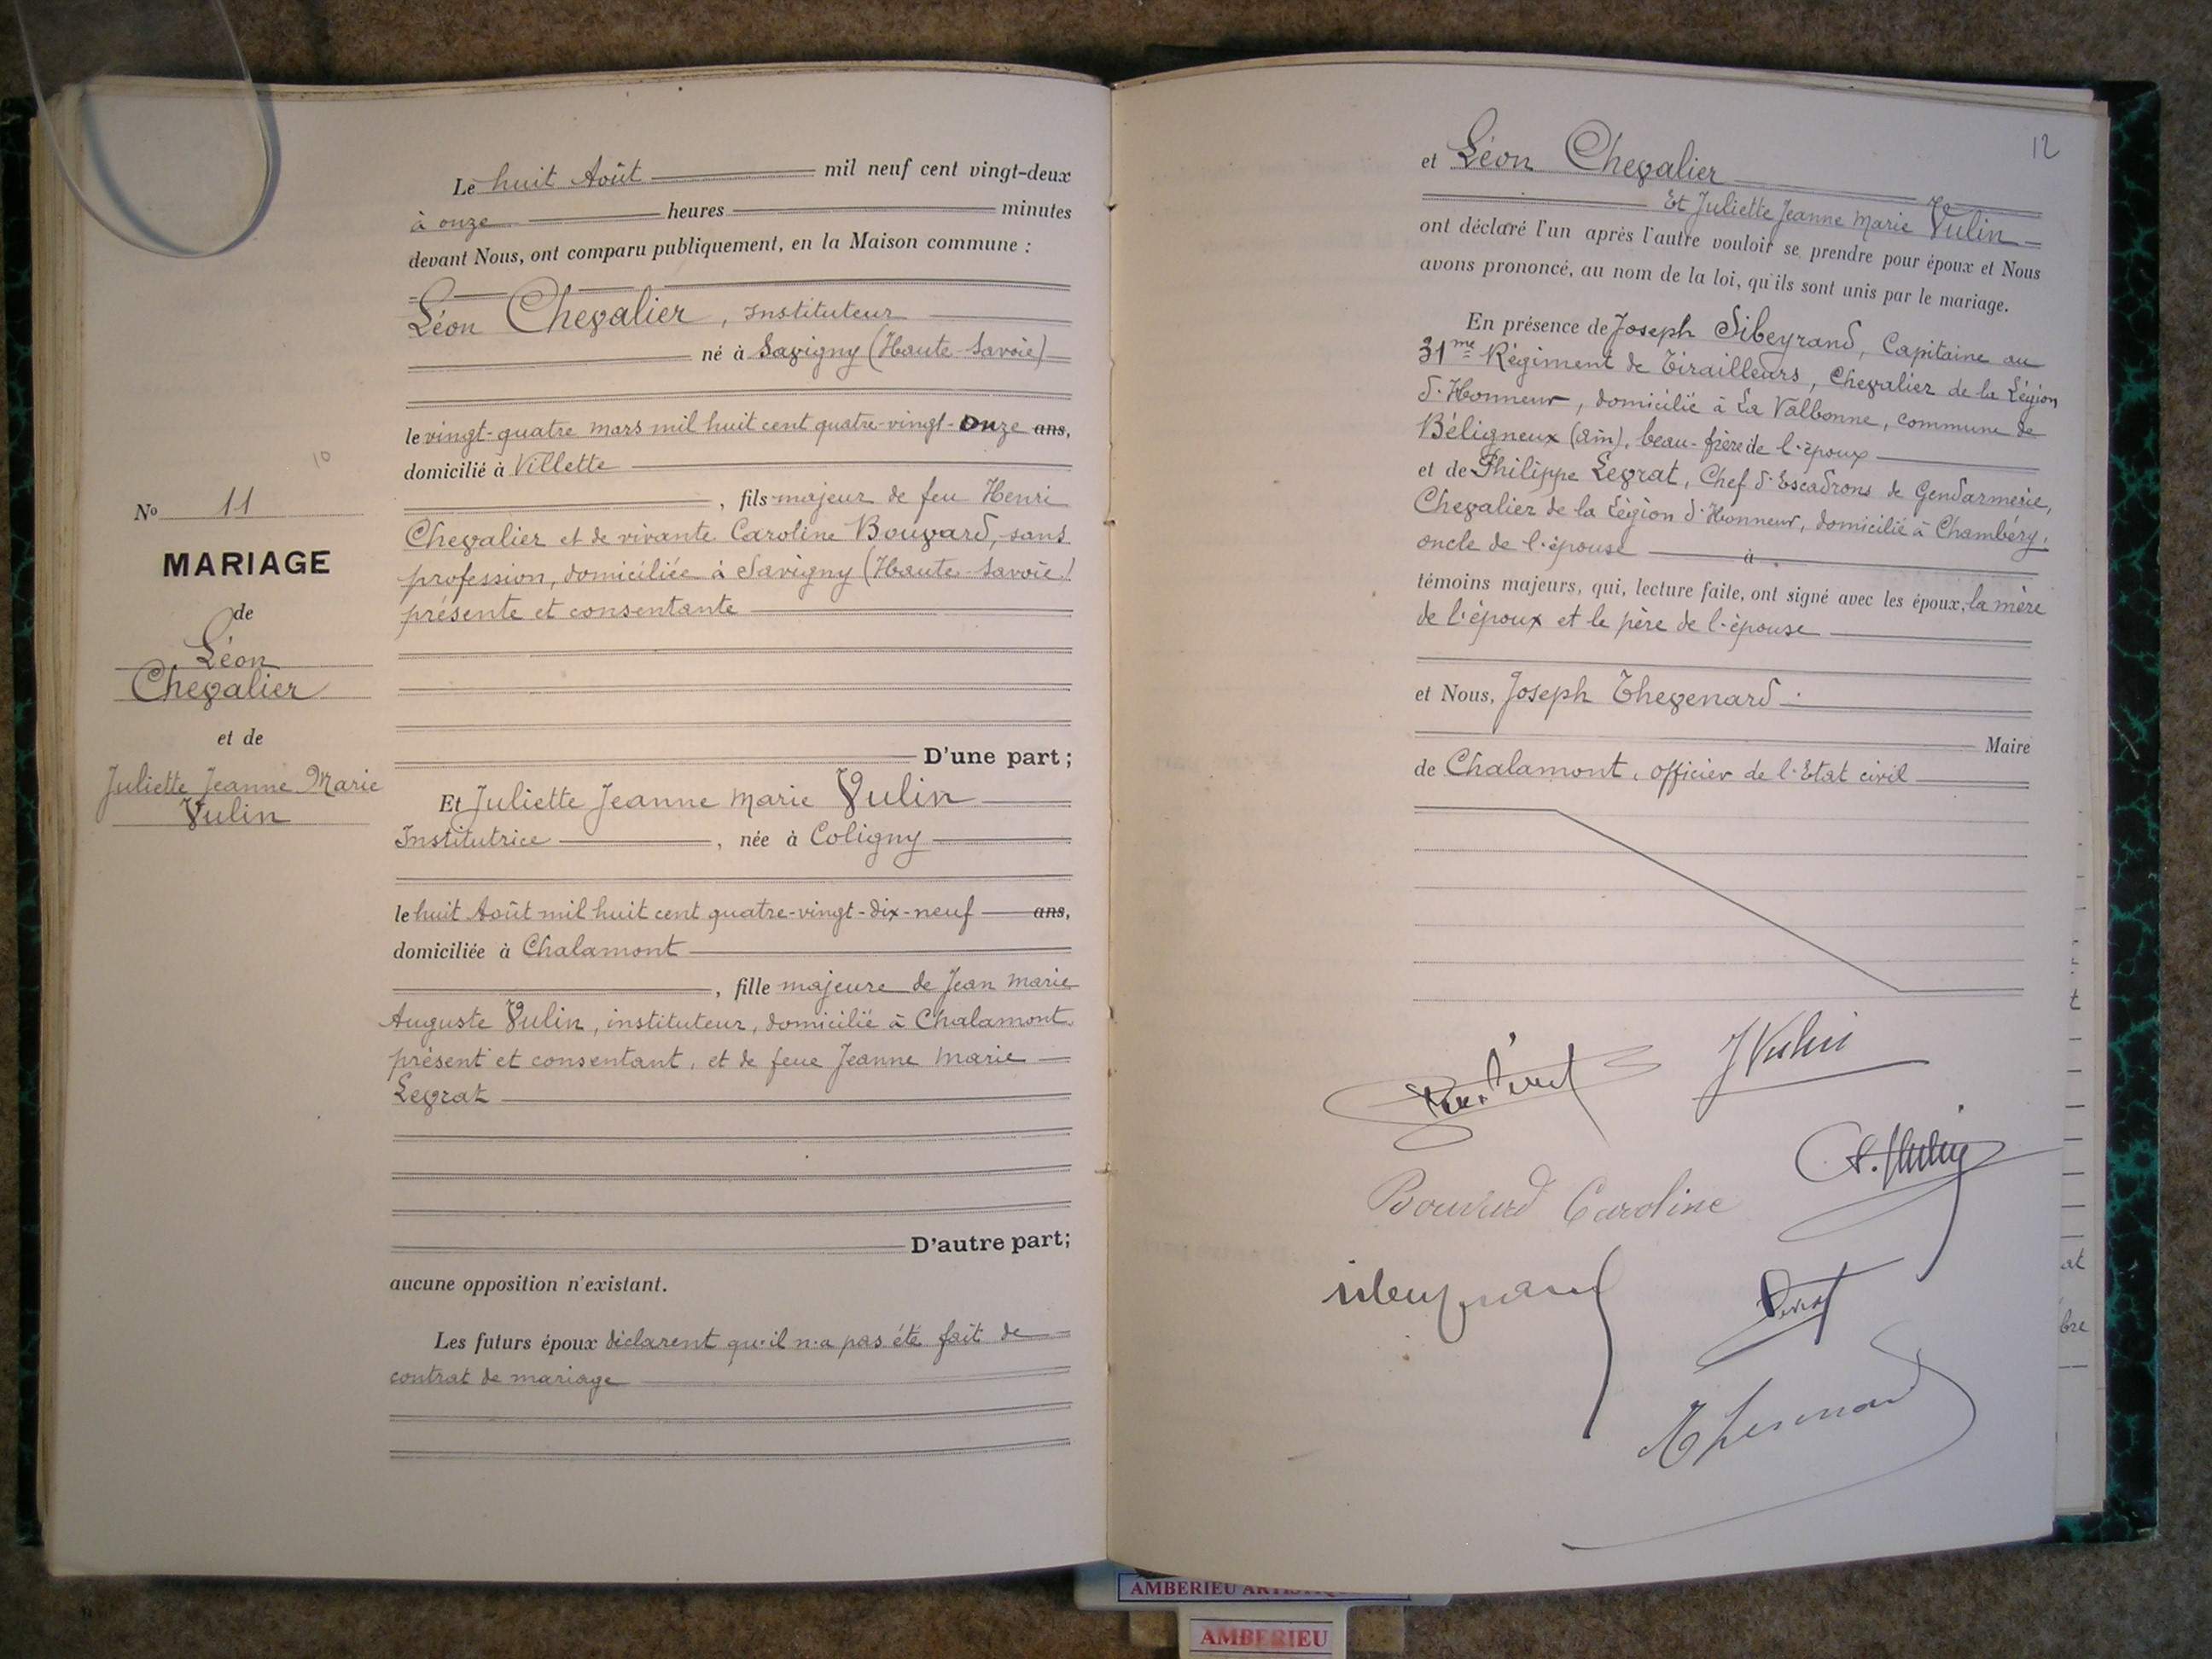 Le huit Août mil neuf cent vingt-deux
à onze heures minutes
devant Nous, ont comparu publiquement, en la Maison commune :
Léon Chevalier, instituteur
né à Savigny (Haute-Savoie)
le vingt-quatre mars mil huit cent quatre-vingt-onze ans,
domicilié à Villette
, fils majeur de feu Henri
Chevalier et de vivante Caroline Bouvard, sans
profession, domiciliée à Savigny (Haute-Savoie)
présente et consentante
D'une part ;
Et Juliette Jeanne Marie Vulin
Institutrice, née à Coligny
le huit Août mil huit cent quatre-vingt-dix-neuf ans,
domiciliée à Chalamont
, fille majeure de Jean Marie
Auguste Vulin, instituteur, domicilié à Chalamont.
présent et consentant, et de feue Jeanne Marie
Levrat
D'autre part ;
aucune opposition n'existant.
Les futurs époux déclarent qu'il n'a pas été fait de
contrat de mariage
10
No 11
MARIAGE
de
Léon
Chevalier
et de
Juliette Jeanne Marie
Vulin
12
et Léon Chevalier
Et Juliette Jeanne Marie Vulin
ont déclaré l'un après l'autre vouloir se prendre pour époux et Nous
avons prononcé, au nom de la loi, qu'ils sont unis par le mariage.
En présence de Joseph Sibeyrand, Capitaine au
31me Régiment de Tirailleurs, Chevalier de la Légion
d'Honneur, domicilié à La Valbonne, commune de
Béligneux (Ain), beau-frère de l'époux
et de Philippe Levrat, Chef d'Escadrons de Gendarmerie,
Chevalier de la Légion d'Honneur, domicilié à Chambéry,
oncle de l'épouse à
témoins majeurs, qui, lecture faite, ont signé avec les époux, la mère
de l'époux et le père de l'épouse
et Nous, Joseph Thevenard
Maire
de Chalamont, officier de l'Etat civil
J Vulin
Bouvard Caroline
Sibeyrand
Levrat
Thevenard
t
at
bre
AMBERIEU
AMBERIEU